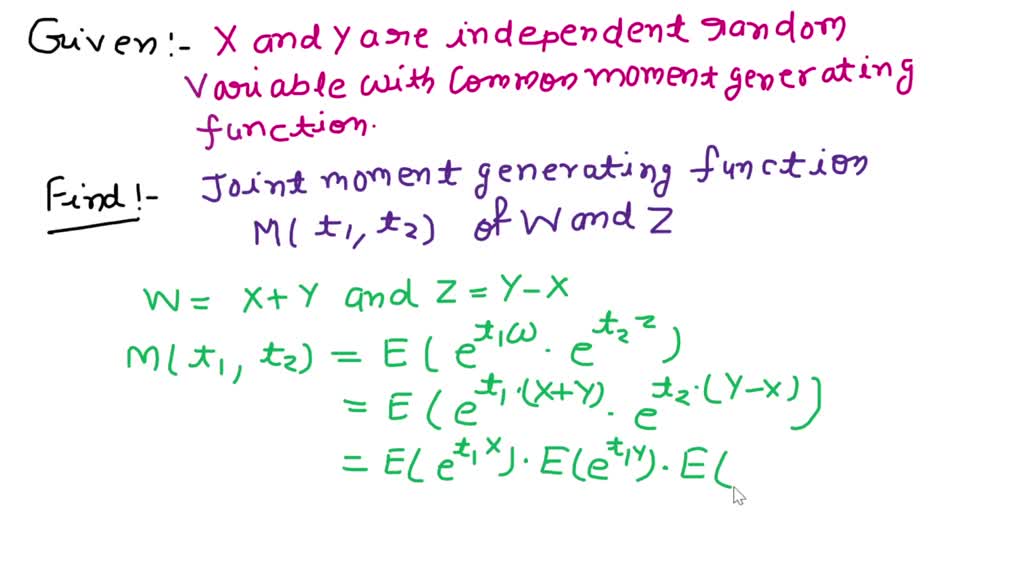 Given:- X and Y are independent random
variable with common moment generating
function.
Find:- Joint moment generating function
M(t₁, t₂) of W and Z
W = X+Y and Z = Y-X
M(t₁, t₂) = E(e^{t₁ω} · e^{t₂z})
= E(e^{t₁·(X+Y)} · e^{t₂·(Y-X)})
= E(e^{t₁X}) · E(e^{t₁Y}) · E(